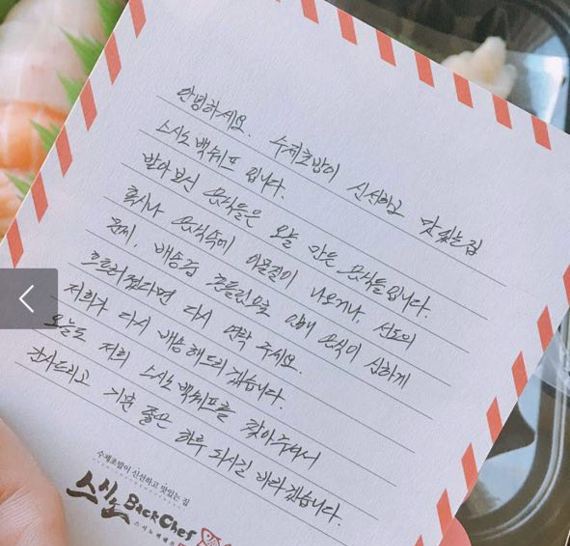 안녕하세요. 수제초밥이 신선하고 맛있는집
스시노백쉐프 입니다.
받아보신 음식들은 오늘 만든 음식들입니다.
혹시나 음식속에 이물질이 나오거나, 선도의
문제, 배송중 흔들림으로 인해 음식이 심하게
흐트러졌다면 다시 연락 주세요.
저희가 다시 배송 해드리겠습니다.
오늘도 저희 스시노백쉐프를 찾아주셔서
감사드리고 기분 좋은 하루 되시길 바라겠습니다.
수제초밥이 신선하고 맛있는 집
스시노 BackChef